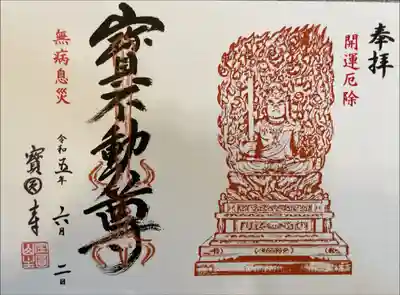 奉拝
開運厄除
寳不動尊
無病息災
令和五年六月二日
寳
寺